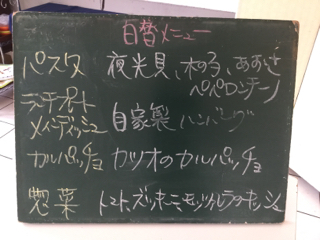 日替メニュー
パスタ 夜光貝、木の子、あおさ
ペペロンチーノ
メインディッシュ 自家製 ハンバーグ
カルパッチョ カツオのカルパッチョ
惣菜 トマト、ズッキーニ モッツァレラのキッシュ